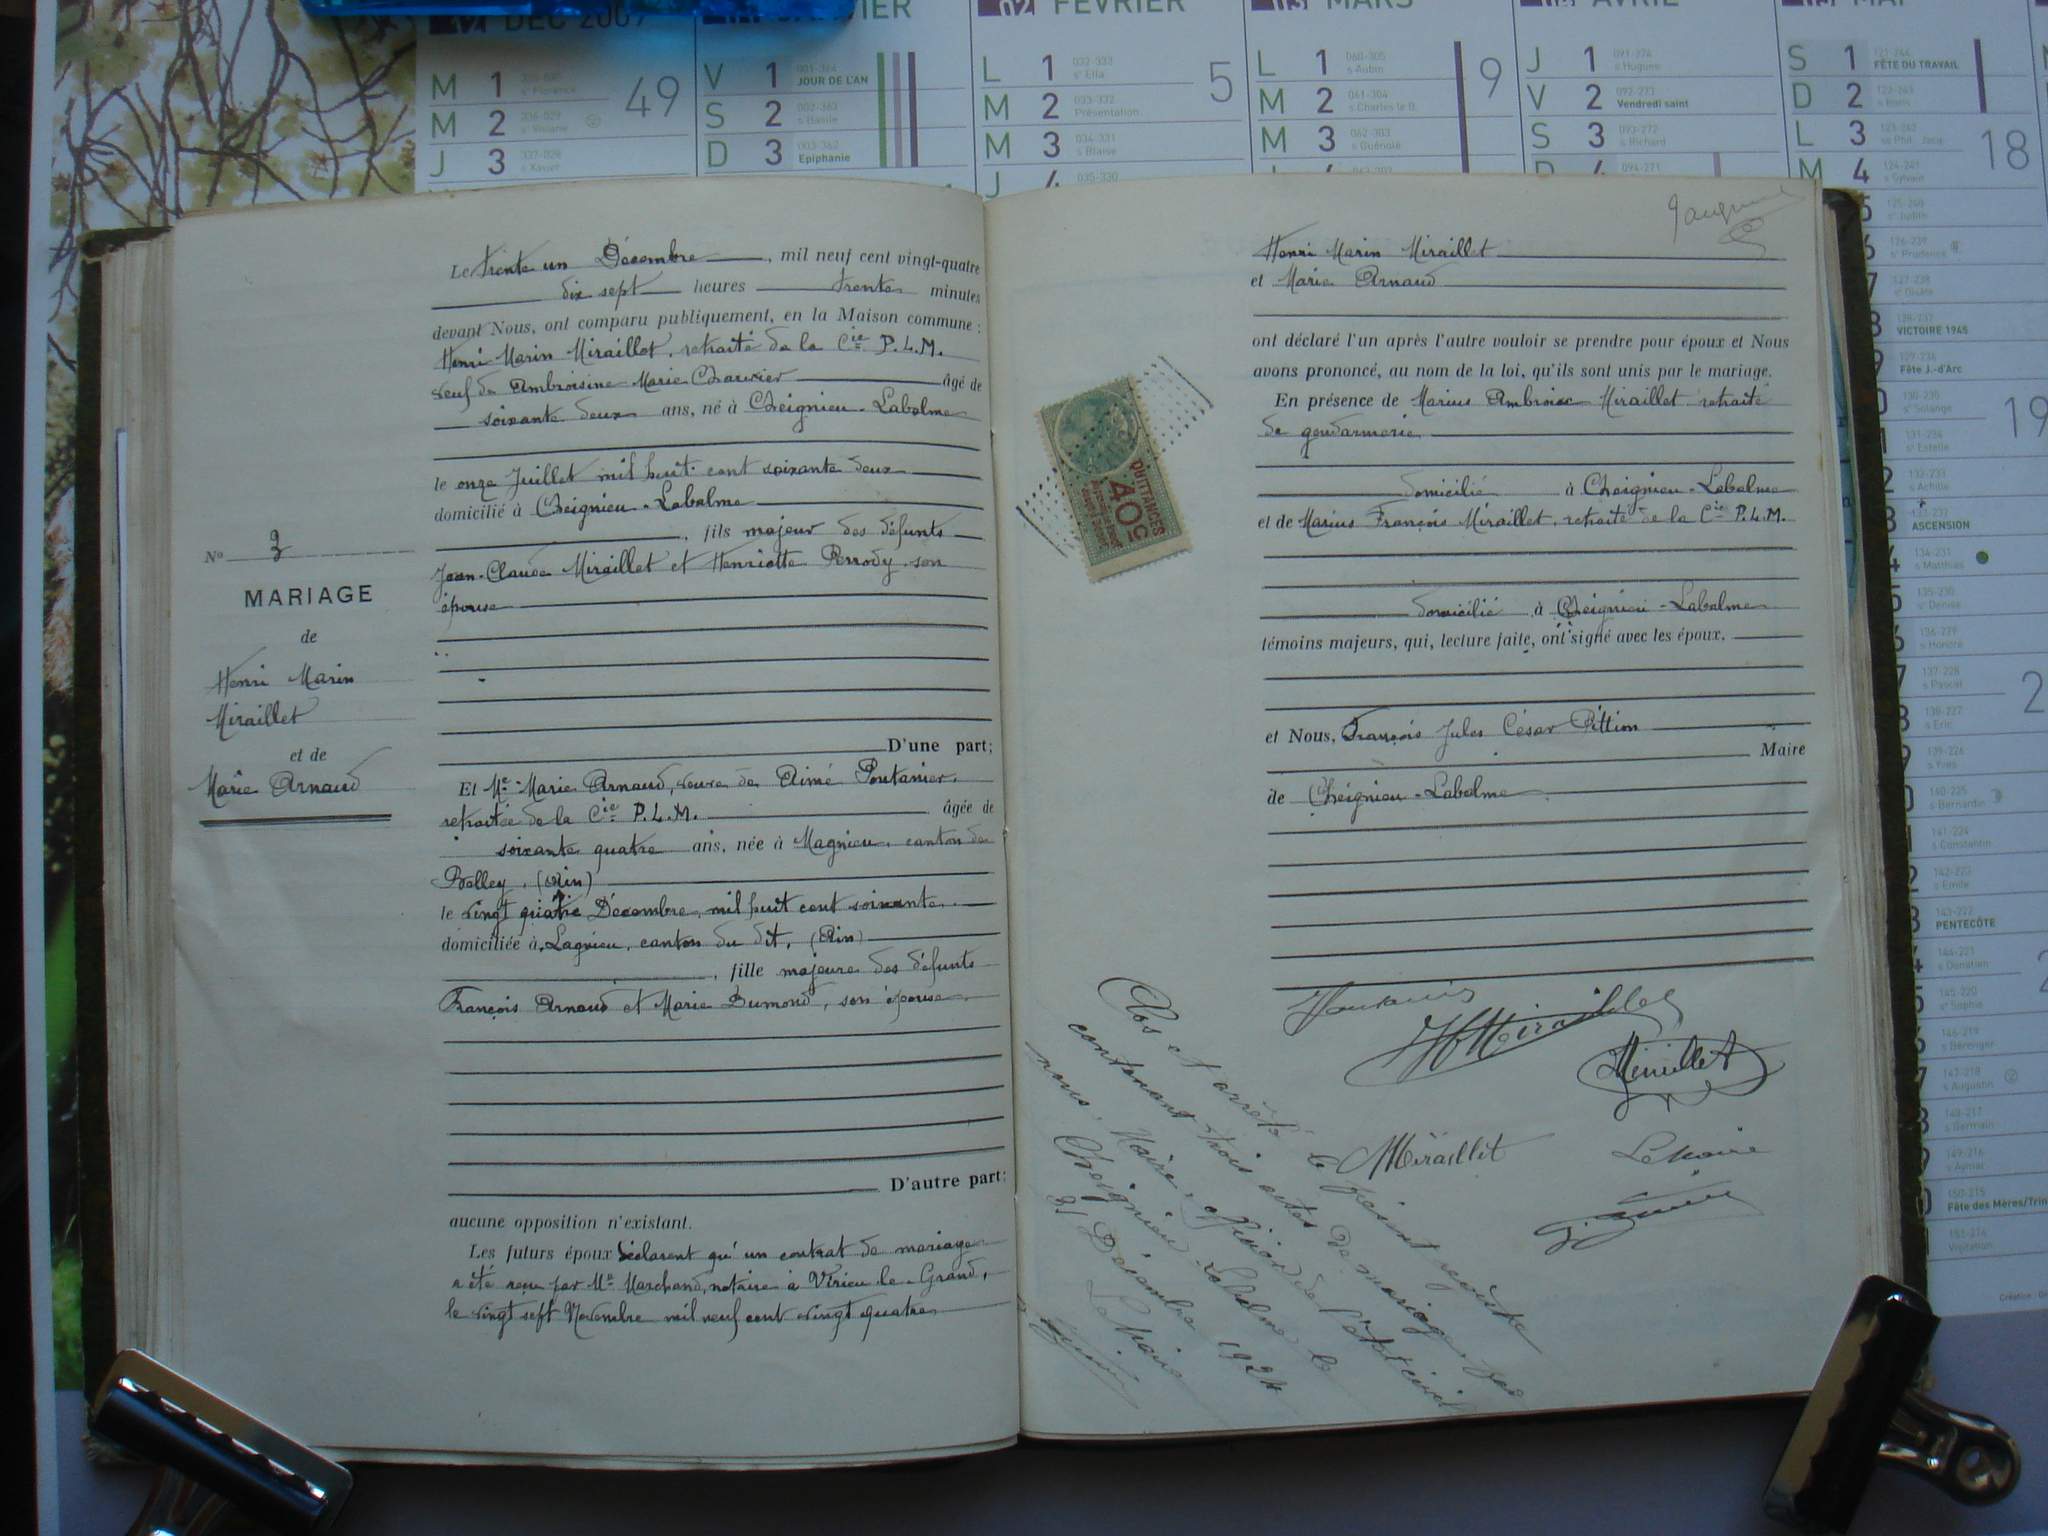 DEC 2009
FÉVRIER
MARS
AVRIL
MAI
M 1 49
M 2
J 3
V 1 JOUR DE L'AN
S 2 s Basile
D 3 Epiphanie
L 1 se Ella 5
M 2 Présentation
M 3 s Blaise
J 4
L 1 s Aubin 9
M 2 s Charles le B.
M 3 s Guénolé
J 1 s Hugues
V 2 Vendredi saint
S 3 s Richard
D 4
S 1 FÊTE DU TRAVAIL
D 2 s Boris
L 3 18
M 4 s Sylvain
VICTOIRE 1945
Fête J.-d'Arc
19
ASCENSION
s Matthias
PENTECÔTE
Fête des Mères/Trin
Nº 3
MARIAGE
de
Henri Marin
Miraillet
et de
Marie Arnaud
Le trente un Décembre, mil neuf cent vingt-quatre
dix sept heures trente minutes
devant Nous, ont comparu publiquement, en la Maison commune :
Henri Marin Miraillet, retraité de la Cie P.L.M.
veuf de Ambroisine Marie Charvier âgé de
soixante deux ans, né à Cheignieu-Labalme
le onze Juillet mil huit cent soixante deux
domicilié à Cheignieu-Labalme
, fils majeur des défunts
Jean-Claude Miraillet et Henriette Perrody son
épouse
D'une part;
Et Me Marie Arnaud, veuve de Aimé Poutanier.
retraitée de la Cie P.L.M. âgée de
soixante quatre ans, née à Magnieu, canton de
Belley. (Ain)
le vingt quatre Décembre, mil huit cent soixante
domiciliée à Lagnieu, canton du dit, (Ain)
, fille majeure des défunts
François Arnaud et Marie Dumond, son épouse.
D'autre part;
aucune opposition n'existant.
Les futurs époux déclarent qu'un contrat de mariage
a été reçu par Me Marchand, notaire à Virieu-le-Grand,
le vingt sept Novembre mil neuf cent vingt quatre
QUITTANCES
40c
Henri Marin Miraillet
et Marie Arnaud
ont déclaré l'un après l'autre vouloir se prendre pour époux et Nous
avons prononcé, au nom de la loi, qu'ils sont unis par le mariage.
En présence de Marius Ambroise Miraillet retraité
de gendarmerie
domicilié à Cheignieu-Labalme
et de Marius François Miraillet, retraité de la Cie P.L.M.
domicilié à Cheignieu-Labalme
témoins majeurs, qui, lecture faite, ont signé avec les époux.
et Nous, François Jules César Pittion
Maire
de Cheignieu-Labalme
HMiraillet
Miraillet
Miraillet
Le Maire
Clos et arrêté le présent registre
contenant trois actes de mariage par
nous, Maire, officier de l'Etat civil
Cheignieu Labalme le
31 Décembre 1924
Le Maire